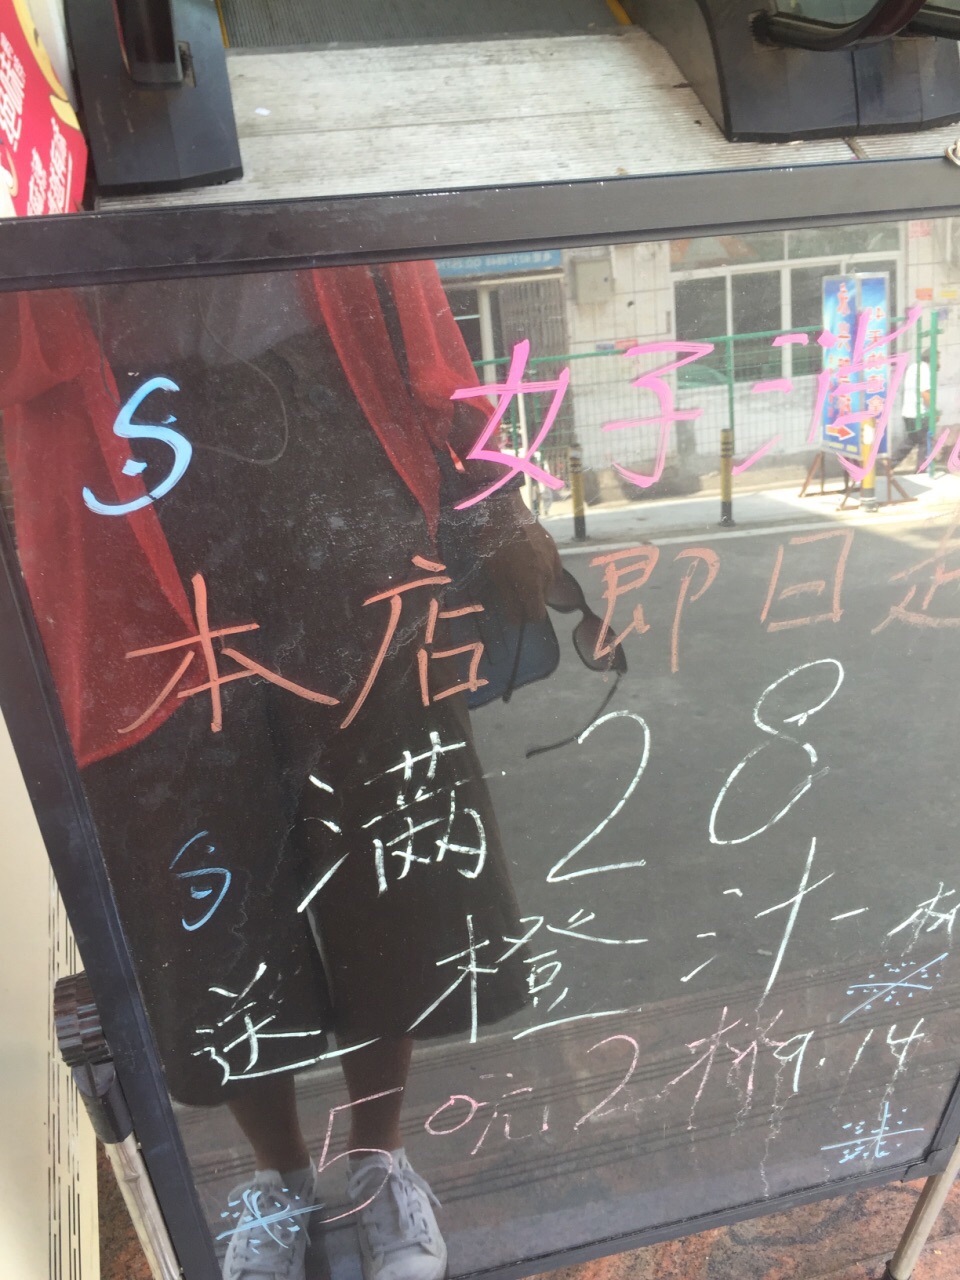 好消
本店即日起
满28
送橙汁一杯
50元2杯9.14